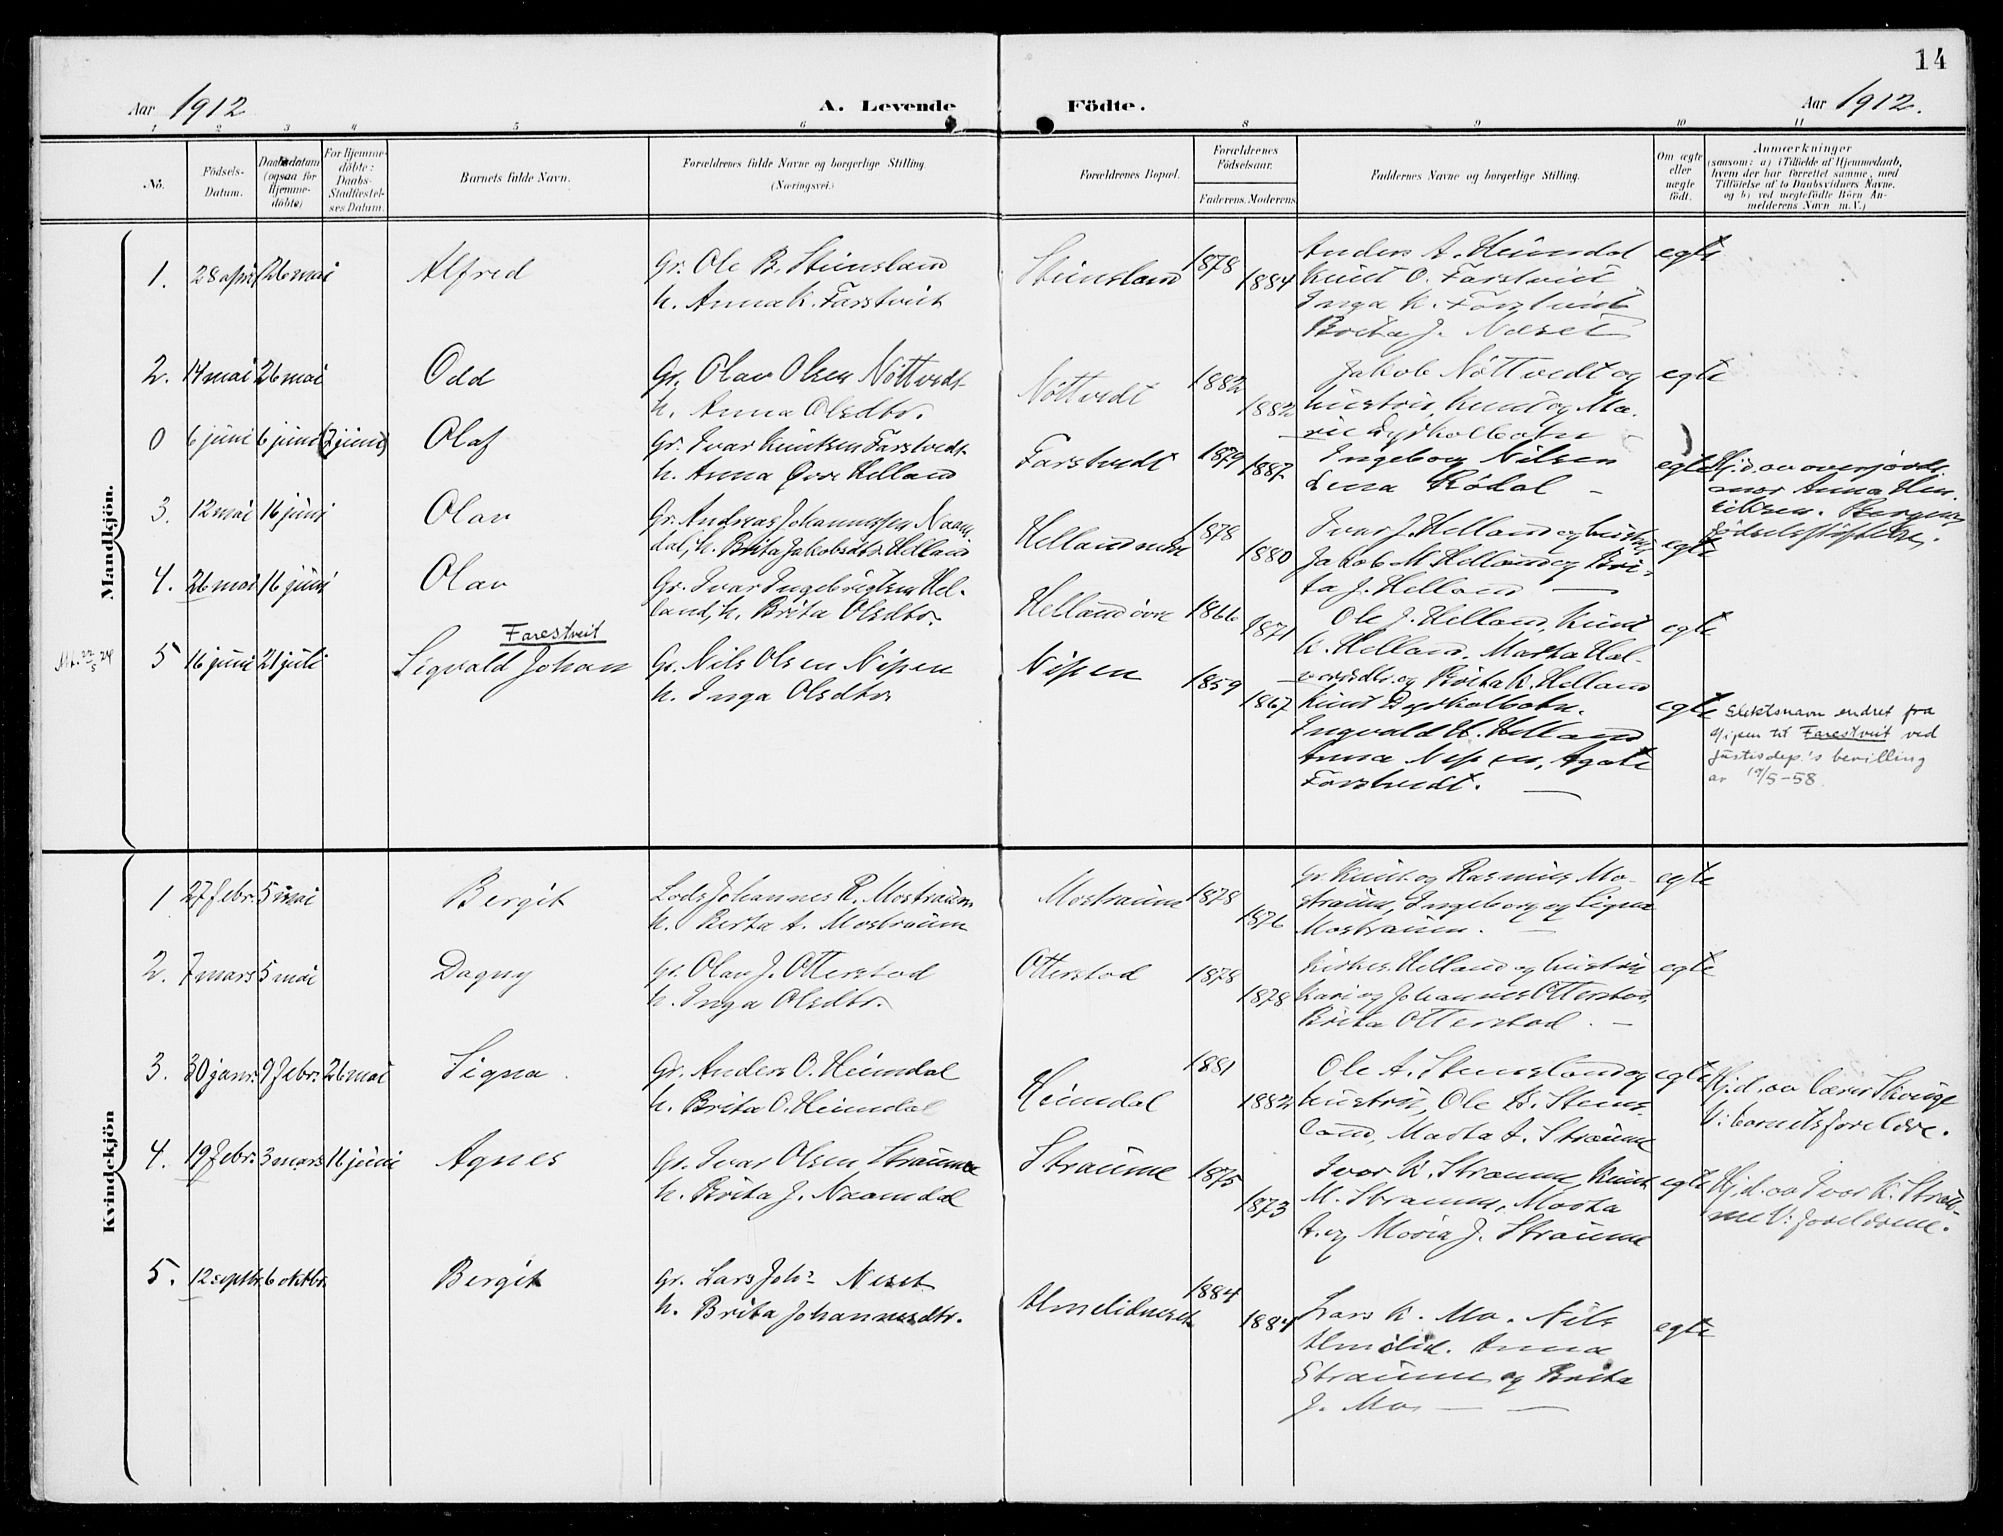 14
Aar 1912
A. Levende
Födte.
Aar 1912.
1 2 3 4 5 6 8 9 10 11
No.
Födsels-
Datum.
Daabsdatum
(ogsaa for
Hjemme-
döbte)
For Hjemme-
döbte:
Daabs-
Stadfæstel-
ses Datum.
Barnets fulde Navn.
Forældrenes fulde Navne og borgerlige Stilling.
(Næringsvei.)
Forældrenes Bopæl.
Forældrenes
Födselsaar.
Faderens. Moderens.
Faddernes Navne og borgerlige Stilling.
Om ægte
eller
uægte
födt.
Anmærkninger
(saasom: a) i Tilfælde af Hjemmedaab,
hvem der har forrettet samme, med
Tilföielse af to Daabsvidners Navne.
og b) ved uegtefödte Börn An-
melderens Navn m. V.)
Mandkjön.
1. 28 april 26 mai Alfred
Gr. Ole B. Steinsland
h. Anna K. Farstveit
Steinsland 1878 1884
Anders A. Heimdal
Knut O. Farstveit
Inga K. Farstveit
Brita J. Neset
egte
2. 14 mai 26 mai Odd
Gr. Olav Olsen Nöttvedt
h. Anna Olsdtr.
Nöttvedt 1882 1882
Jakob Nöttvedt og
hustru, Knut og Ma-
rie Dyrkolbotn
egte
0 6 juni 6 juni (2 juni) Olaf
Gr. Ivar Knutsen Farstvedt
h. Anna Helland
Farstvedt 1879 1887
Ingeborg Nilsen
Lena Rödal
egte
Hj.d. av overjord-
mor Anna Hen-
riksen. Bergens
födselsstiftelse.
3. 12 mai 16 juni Olav
Gr. Andreas Johannessen Naam-
dal, h. Brita Jakobsdtr. Helland
Helland nedre 1878 1880
Ivar J. Helland og hustru,
Jakob M. Helland og Bri-
ta J. Helland
egte
4. 26 mai 16 juni Olav
Gr. Ivar Ingebrigtsen Hel-
land, h. Brita Olsdtr.
Helland övre 1866 1871
Ole J. Helland, Knut
K. Helland, Marta Hal-
vorsdtr. og Brita K. Helland
egte
Farestveit
5 16 juni 21 juli Sigvald Johan
Gr. Nils Olsen Nipen
h. Inga Olsdtr.
Nipen 1859 1867
Knut Dyrkolbotn.
Ingvald H. Helland
Anna Nipen, Agate
Farstvedt.
egte
Slektsnavn endret fra
Nipen til Farestveit ved
Justisdep.'s bevilling
av 19/5-58.
Kvindekjön
1 27 febr. 5 mai Bergit
Lods Johannes R. Mostraum
h. Berta A. Mostraum
Mostraum 1878 1876
Gr. Knut og Rasmus Mo-
straum, Ingeborg og Signa
Mostraum.
egte
2. 7 mars 5 mai Dagny
Gr. Olav J. Otterstad
h. Inga Olsdtr.
Otterstad 1878 1878
Helland og hustru
Kari og Johannes Otterstad,
Brita Otterstad.
egte
3. 30 janr. 9 febr. 26 mai Signa
Gr. Anders O. Heimdal
h. Brita O. Heimdal
Heimdal 1881 1882
Ole A. Steinsland og
hustru, Ole B. Steins-
land, Marta A. Straume
egte
Hj.d. av lærer Skauge
V: barnets foreldre.
4. 19 febr. 3 mars 16 juni Agnes
Gr. Ivar Olsen Straume
h. Brita J. Naamdal
Straume 1875 1873
Ivar K. Straume, Knut
M. Straume, Marta
A. og Maria J. Straume
egte
Hj.d. av Ivar K. Strau-
me V: foreldrene.
5. 12 septbr. 6 oktbr. Bergit
Gr. Lars Johs Neset
h. Brita Johannesdtr.
Almelidneset 1884 1884
Lars K. Mo. Nils
Almelid. Anna
Straume og Brita
J. Mo
egte